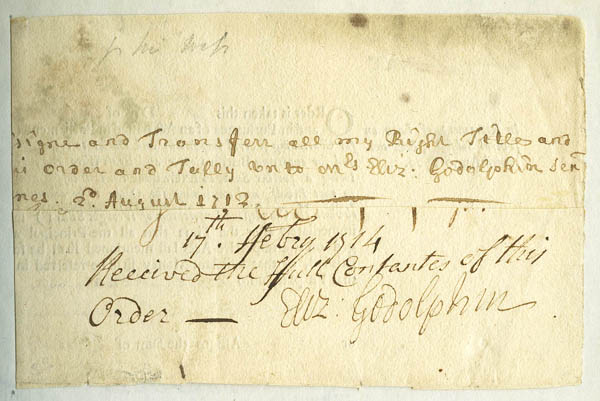 signe and Transferr all my Right Title and
Order and Tally unto Mrs Eliz: Godolphin senr
2d August 1712
17th. Febry 1714
Received the full Contentes of this
Order — Eliz: Godolphin